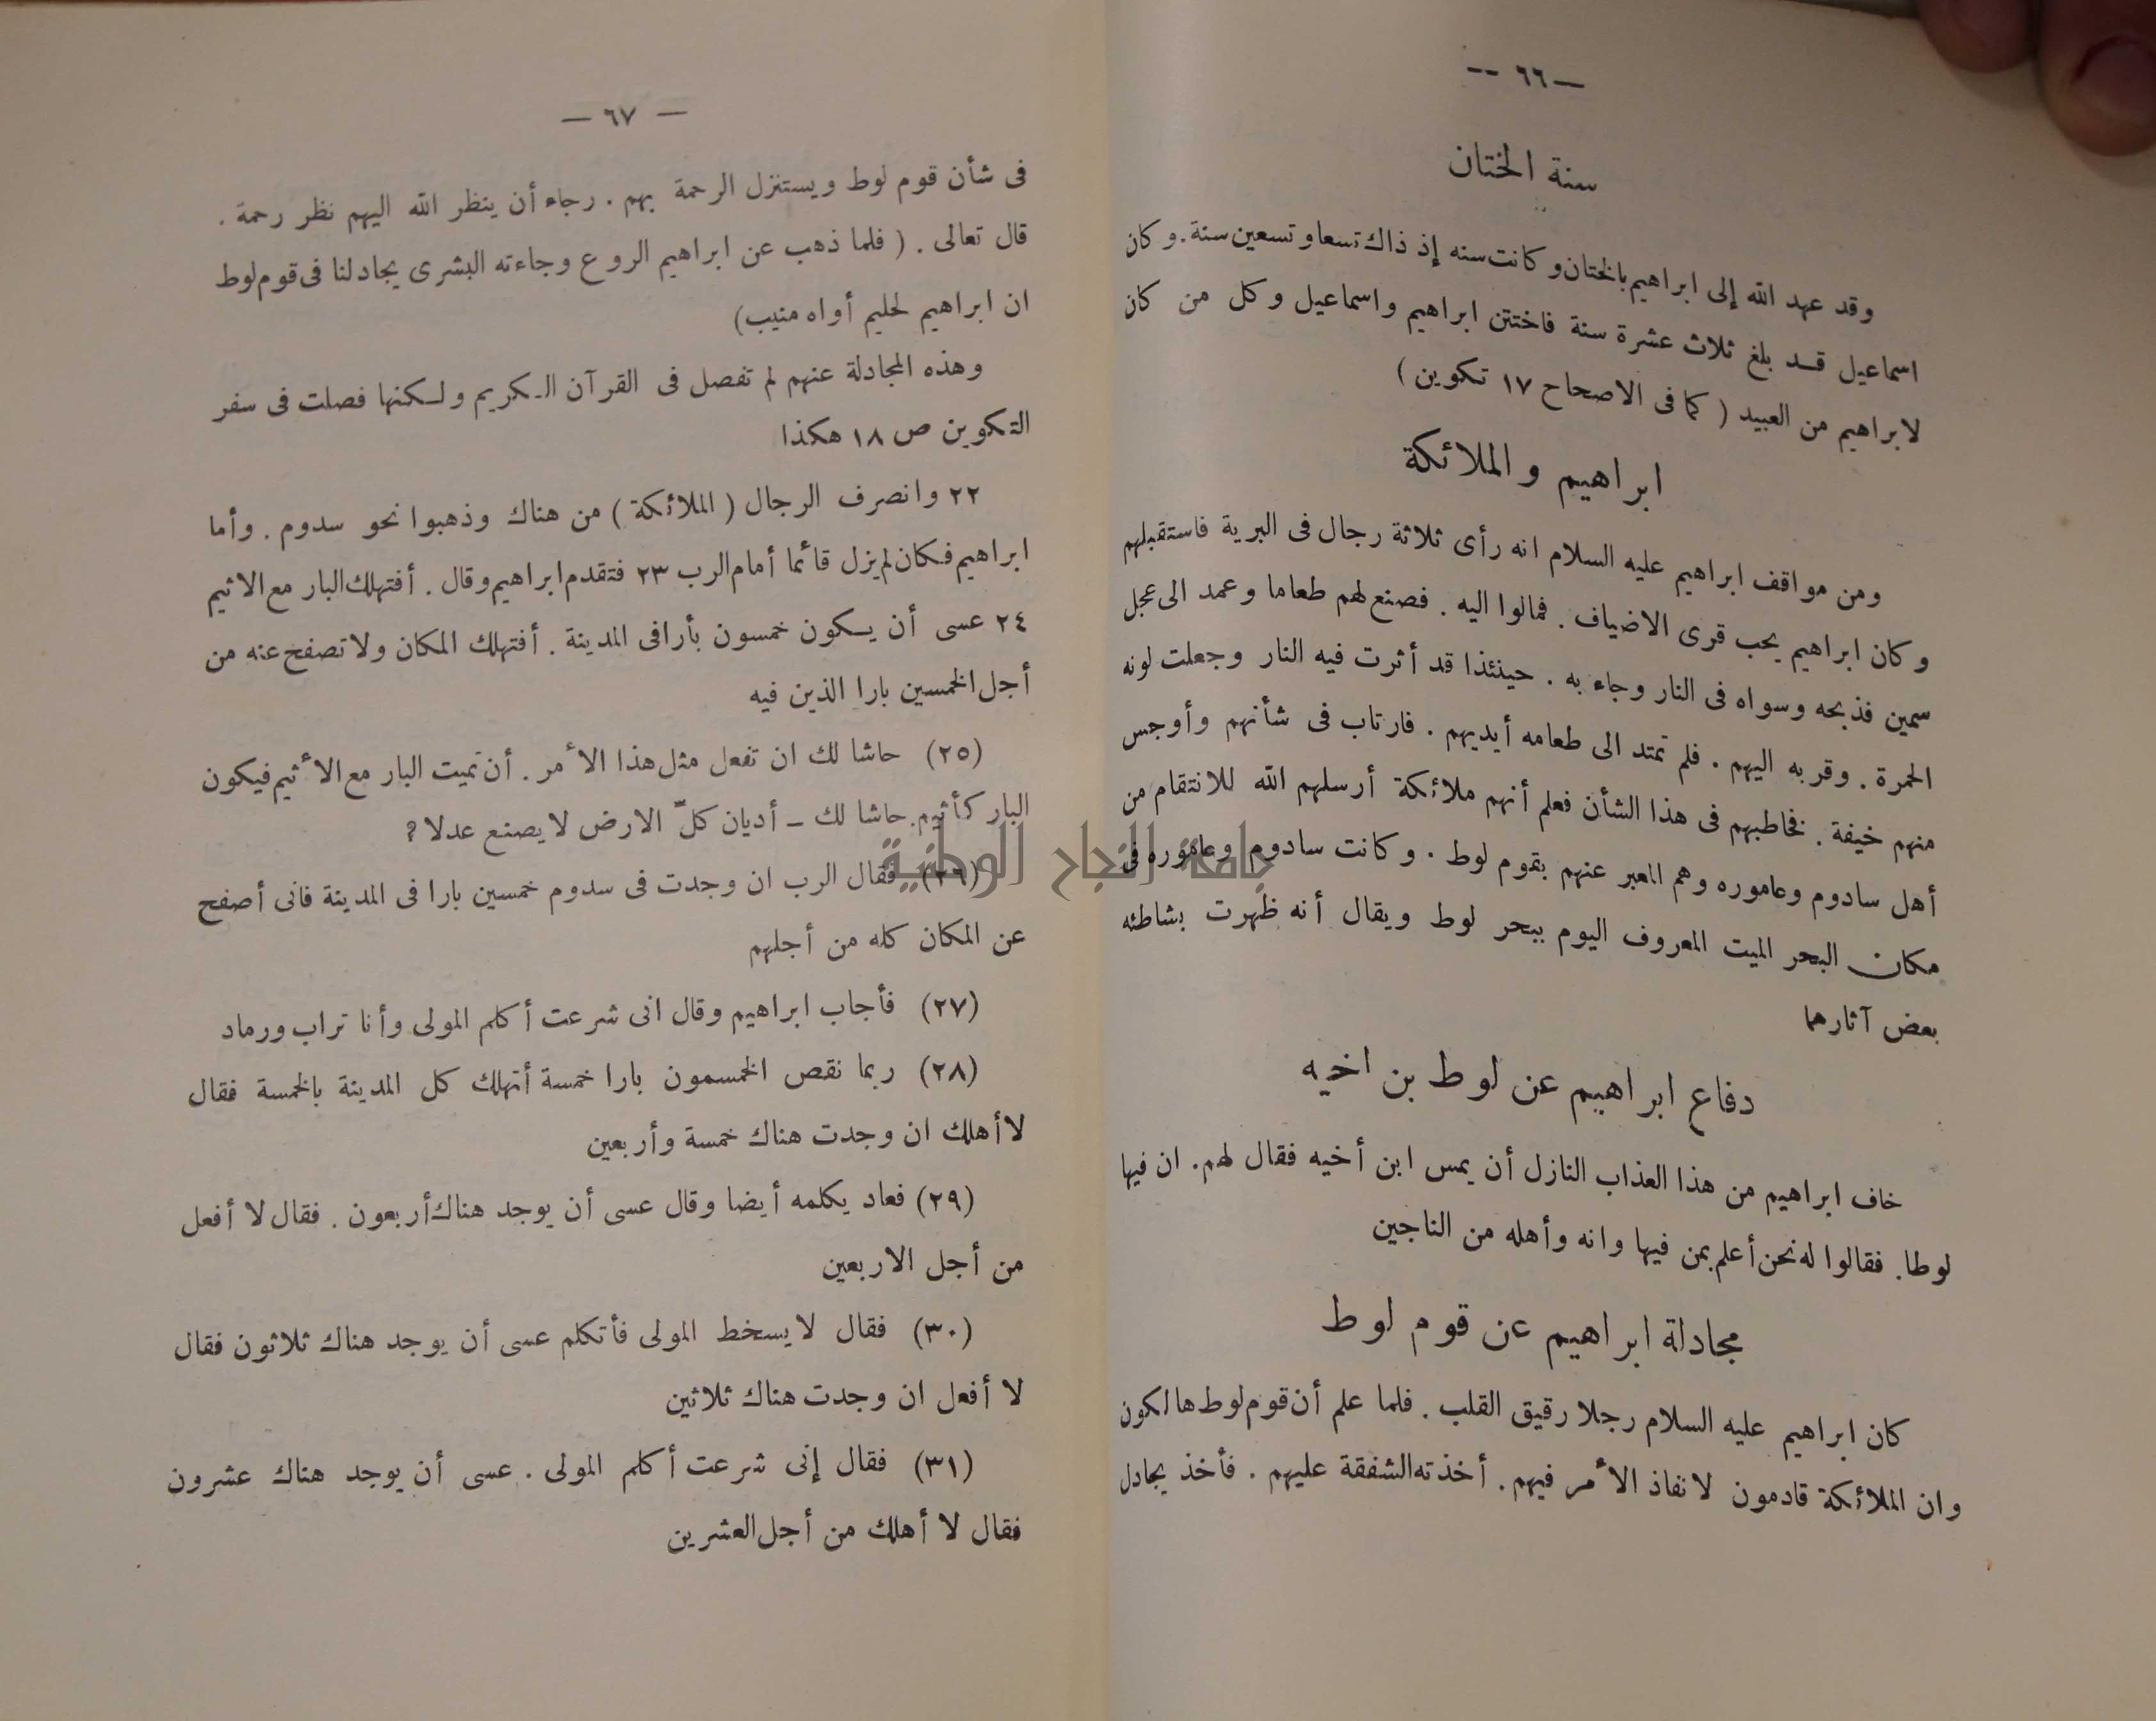 —٦٦ --
سنة الختان
وقد عهد الله إلى ابراهيم بالختان وكانت سنه إذ ذاك تسعا وتسعين سنة. وكان
اسماعيل قد بلغ ثلاث عشرة سنة فاختتن ابراهيم واسماعيل وكل من كان
لابراهيم من العبيد ( كما فى الاصحاح ١٧ تكوين )
ابراهيم والملائكة
ومن مواقف ابراهيم عليه السلام انه رأى ثلاثة رجال فى البرية فاستقبلهم
وكان ابراهيم يحب قرى الاضياف . فمالوا اليه . فصنع لهم طعاما وعمد الى عجل
سمين فذبحه وسواه فى النار وجاء به . حينئذا قد أثرت فيه النار وجعلت لونه
الحمرة . وقربه اليهم . فلم تمتد الى طعامه أيديهم . فارتاب فى شأنهم وأوجس
منهم خيفة . فخاطبهم فى هذا الشأن فعلم أنهم ملائكة أرسلهم الله للانتقام من
أهل سادوم وعاموره وهم المعبر عنهم بقوم لوط . وكانت سادوم وعاموره فى
مكان البحر الميت المعروف اليوم ببحر لوط ويقال أنه ظهرت بشاطئه
بعض آثارهما
دفاع ابراهيم عن لوط بن اخيه
خاف ابراهيم من هذا العذاب النازل أن يمس ابن أخيه فقال لهم. ان فيها
لوطا. فقالوا له نحن أعلم بمن فيها وانه وأهله من الناجين
مجادلة ابراهيم عن قوم لوط
كان ابراهيم عليه السلام رجلا رقيق القلب . فلما علم أن قوم لوط هالكون
وان الملائكة قادمون لانفاذ الأمر فيهم. أخذته الشفقة عليهم . فأخذ يجادل
— ٦٧ —
فى شأن قوم لوط ويستنزل الرحمة بهم . رجاء أن ينظر الله اليهم نظر رحمة .
قال تعالى . ( فلما ذهب عن ابراهيم الروع وجاءته البشرى يجادلنا فى قوم لوط
ان ابراهيم لحليم أواه منيب)
وهذه المجادلة عنهم لم تفصل فى القرآن الكريم ولكنها فصلت فى سفر
التكوين ص ١٨ هكذا
٢٢ وانصرف الرجال ( الملائكة ) من هناك وذهبوا نحو سدوم . وأما
ابراهيم فكان لم يزل قائما أمام الرب ٢٣ فتقدم ابراهيم وقال . أفتهلك البار مع الاثيم
٢٤ عسى أن يكون خمسون بأرافى المدينة . أفتهلك المكان ولا تصفح عنه من
أجل الخمسين بارا الذين فيه
(٢٥) حاشا لك ان تفعل مثل هذا الأمر . أن تميت البار مع الأثيم فيكون
البار كأثيم. حاشا لك – أديان كلّ الارض لا يصنع عدلا ؟
(٢٦) فقال الرب ان وجدت فى سدوم خمسين بارا فى المدينة فانى أصفح
عن المكان كله من أجلهم
(٢٧) فأجاب ابراهيم وقال انى شرعت أكلم المولى وأنا تراب ورماد
(٢٨) ربما نقص الخمسون بارا خمسة أتهلك كل المدينة بالخمسة فقال
لا أهلك ان وجدت هناك خمسة وأربعين
(٢٩) فعاد يكلمه أيضا وقال عسى أن يوجد هناك أربعون . فقال لا أفعل
من أجل الاربعين
(٣٠) فقال لا يسخط المولى فأتكلم عسى أن يوجد هناك ثلاثون فقال
لا أفعل ان وجدت هناك ثلاثين
(٣١) فقال إنى شرعت أكلم المولى . عسى أن يوجد هناك عشرون
فقال لا أهلك من أجل العشرين
جامعة النجاح الوطنية